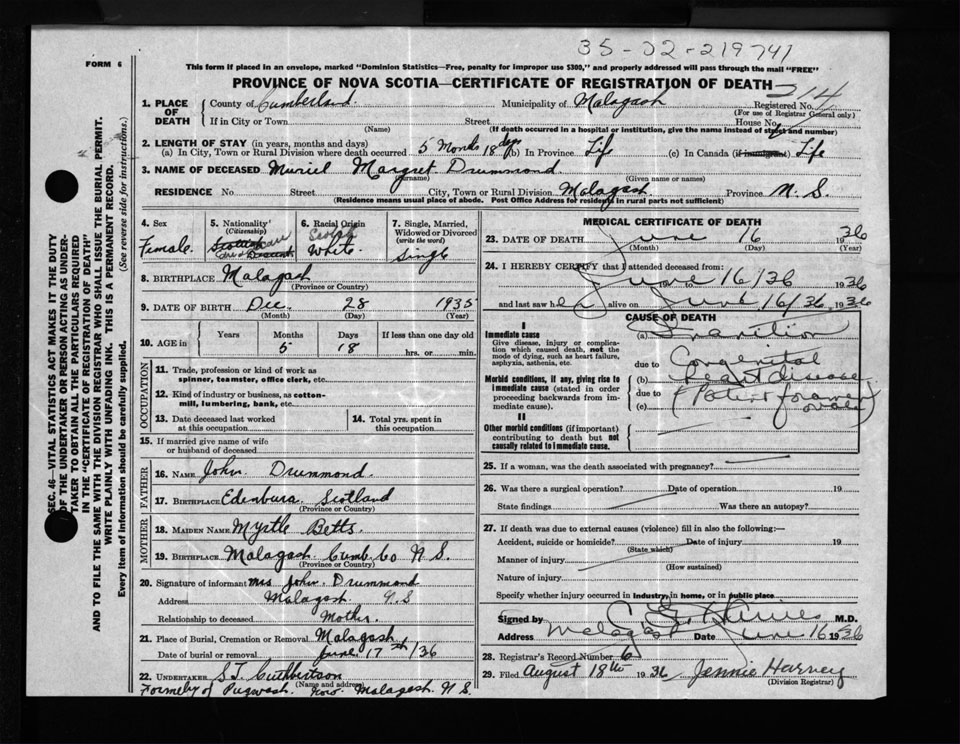 35-02-219741
FORM 6
This form if placed in an envelope, marked "Dominion Statistics—Free, penalty for improper use $300," and properly addressed will pass through the mail "FREE"
PROVINCE OF NOVA SCOTIA—CERTIFICATE OF REGISTRATION OF DEATH
214
1. PLACE OF DEATH
County of Cumberland Municipality of Malagash Registered No.
(For use of Registrar General only)
If in City or Town Street House No.
(Name) (If death occurred in a hospital or institution, give the name instead of street and number)
2. LENGTH OF STAY (in years, months and days)
(a) In City, Town or Rural Division where death occurred 5 Monds 18 days (b) In Province Life (c) In Canada (if immigrant) Life
3. NAME OF DECEASED Muriel Margret Drummond
(Surname) (Given name or names)
RESIDENCE No Street City, Town or Rural Division Malagash Province N. S.
(Residence means usual place of abode. Post Office Address for residents in rural parts not sufficient)
4. Sex
Female
5. Nationality
(Citizenship)
6. Racial Origin
White
7. Single, Married, Widowed or Divorced
(write the word)
Single
8. BIRTHPLACE Malagash
(Province or Country)
9. DATE OF BIRTH Dec. 28 1935
(Month) (Day) (Year)
10. AGE in Years Months Days If less than one day old
5 18 hrs. or min.
OCCUPATION
11. Trade, profession or kind of work as
spinner, teamster, office clerk, etc.
12. Kind of industry or business, as cotton-
mill, lumbering, bank, etc.
13. Date deceased last worked
at this occupation
14. Total yrs. spent in
this occupation
15. If married give name of wife
or husband of deceased
FATHER
16. NAME John Drummond
17. BIRTHPLACE Edenbura Scotland
(Province or Country)
MOTHER
18. MAIDEN NAME Myrtle Betts
19. BIRTHPLACE Malagash Cumb Co N S.
(Province or Country)
20. Signature of informant Mrs John Drummond
Address Malagash N.S
Relationship to deceased Mother.
21. Place of Burial, Cremation or Removal Malagash
Date of burial or removal June 17th/36
22. UNDERTAKER S.T. Cuthbertson
(Name and address)
Formeley of Pugwash now Malagash N S.
MEDICAL CERTIFICATE OF DEATH
23. DATE OF DEATH June 16 1936
(Month) (Day) (Year)
24. I HEREBY CERTIFY that I attended deceased from:
June 16/36 to 1936
and last saw her alive on June 16/36 1936
CAUSE OF DEATH
I
Immediate cause
Give disease, injury or complica-
tion which caused death, not the
mode of dying, such as heart failure,
asphyxia, asthenia, etc.
(a) Inanition
due to Congenital
Morbid conditions, if any, giving rise to
immediate cause (stated in order
proceeding backwards from im-
mediate cause).
(b) Heart disease
due to (Patent foramen
(c) ovale)
II
Other morbid conditions (if important)
contributing to death but not
causally related to immediate cause.
25. If a woman, was the death associated with pregnancy?
26. Was there a surgical operation? Date of operation 19
State findings Was there an autopsy?
27. If death was due to external causes (violence) fill in also the following:—
Accident, suicide or homicide? Date of injury 19
(State which)
Manner of injury
(How sustained)
Nature of injury
Specify whether injury occurred in industry, in home, or in public place
Signed by M.D.
Address Malagash Date June 16 1936
28. Registrar's Record Number 6
29. Filed August 18th 1936 Jennie Harvey
(Division Registrar)
SEC. 46—VITAL STATISTICS ACT MAKES IT THE DUTY
OF THE UNDERTAKER OR PERSON ACTING AS UNDER-
TAKER TO OBTAIN ALL THE PARTICULARS REQUIRED
IN THE "CERTIFICATE OF REGISTRATION OF DEATH"
AND TO FILE THE SAME WITH THE DIVISION REGISTRAR WHO SHALL ISSUE THE BURIAL PERMIT.
WRITE PLAINLY WITH UNFADING INK. THIS IS A PERMANENT RECORD.
Every item of information should be carefully supplied. (See reverse side for instructions.)